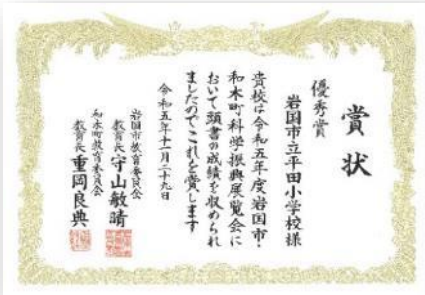 賞状
優秀賞
岩国市立平田小学校様
貴校は令和五年度岩国市・
和木町科学振興展覧会に
おいて頭書の成績を収められ
ましたのでこれを賞します
令和五年十一月二十九日
岩国市教育委員会
教育長 守山敏晴
和木町教育委員会
教育長 重岡良典